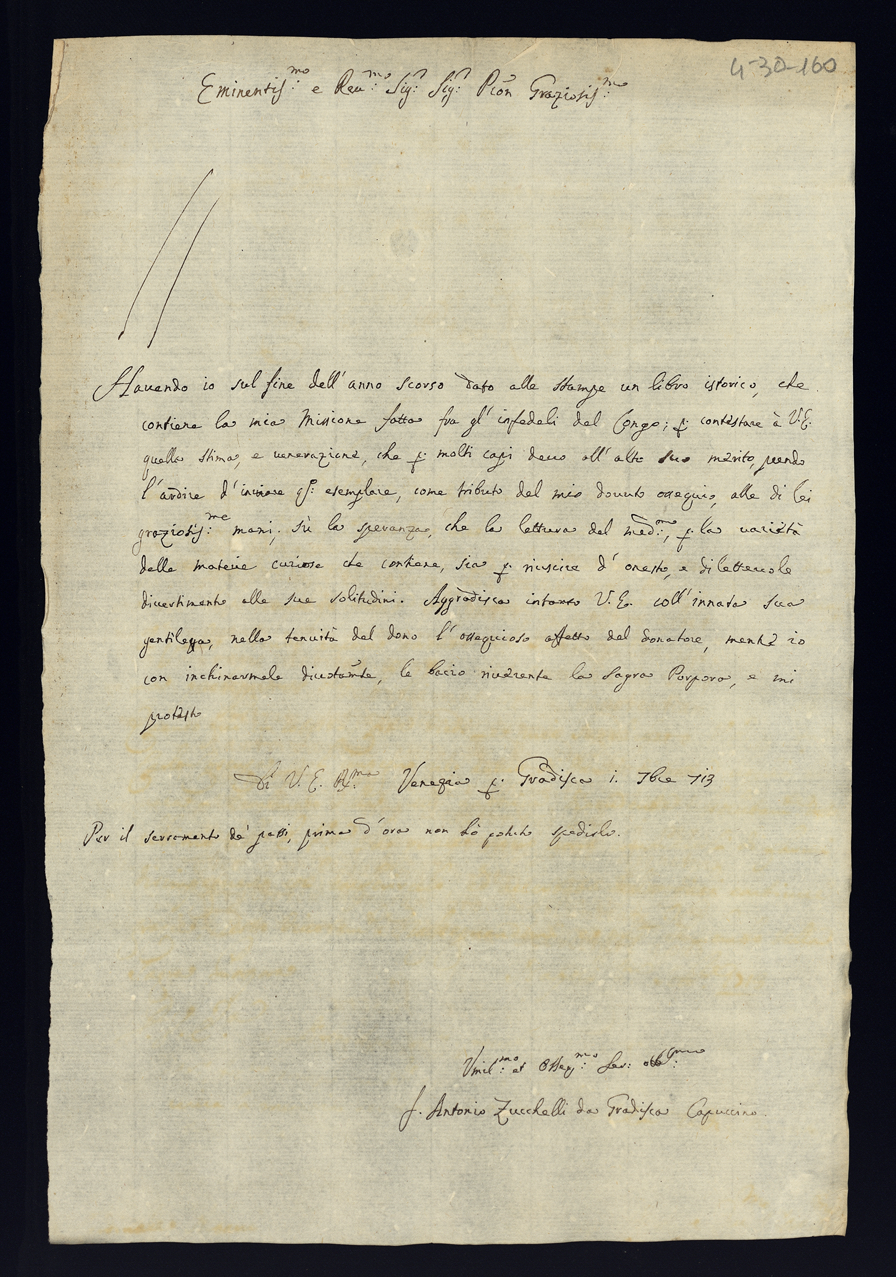 4-30-160
Eminentiss:mo e Reu:mo Sig:r Sig:r Pron Graziosiss:mo
Hauendo io sul fine dell'anno scorso dato alle stampe un libro istorico, che
contiene la mia Missione fatta fra gl'infedeli del Congo; p. contestare à V.E.
quella stima, e uenerazione, che p. molti capi deuo all'alto suo merito, prendo
l'ardire d'inuiare qto: esemplare, come tributo del mio douuto ossequio, alle di lei
graziosiss:me mani; sù la speranza, che la lettura del med:mo, p. la uarietà
delle materie curiose che contiene, sia p. riuscire d'onesto, e diletteuole
diuertimento alle sue solitudini. Aggradisca intanto V.E. coll'innata sua
gentilezza, nella tenuità del dono l'ossequioso affetto del donatore, mentre io
con inchinarmele diuotamte, le bacio riuerente la Sagra Porpora, e mi
protesto
Di V.E. R:ma Venezia p. Gradisca i. 7bre 713
Per il serramento de' passi, prima d'ora non hò potuto spedirlo.
Vmil:mo et Osseq:mo Ser: obblig:mo
f. Antonio Zucchelli da Gradisca Capuccino